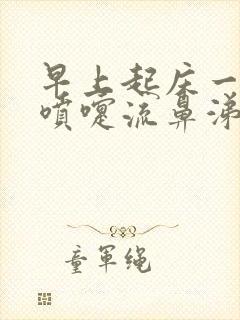 早上起床一
喷嚏流鼻涕
童军绳